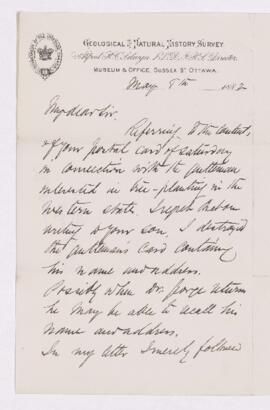 GEOLOGICAL & NATURAL HISTORY SURVEY.
Alfred R. C. Selwyn, LL.D. F.R.S. Director.
MUSEUM & OFFICE, SUSSEX ST OTTAWA.
May 8th 1882
My dear Sir.
Referring to the contents
of your postal card of Saturday
in connection with the gentleman
interested in tree-planting in the
Western States, I regret that on
writing to your son, I destroyed
the gentleman's card containing
his name and address.
Possibly when Dr. George returns
he may be able to recall his
name and address.
In my letter I merely followed